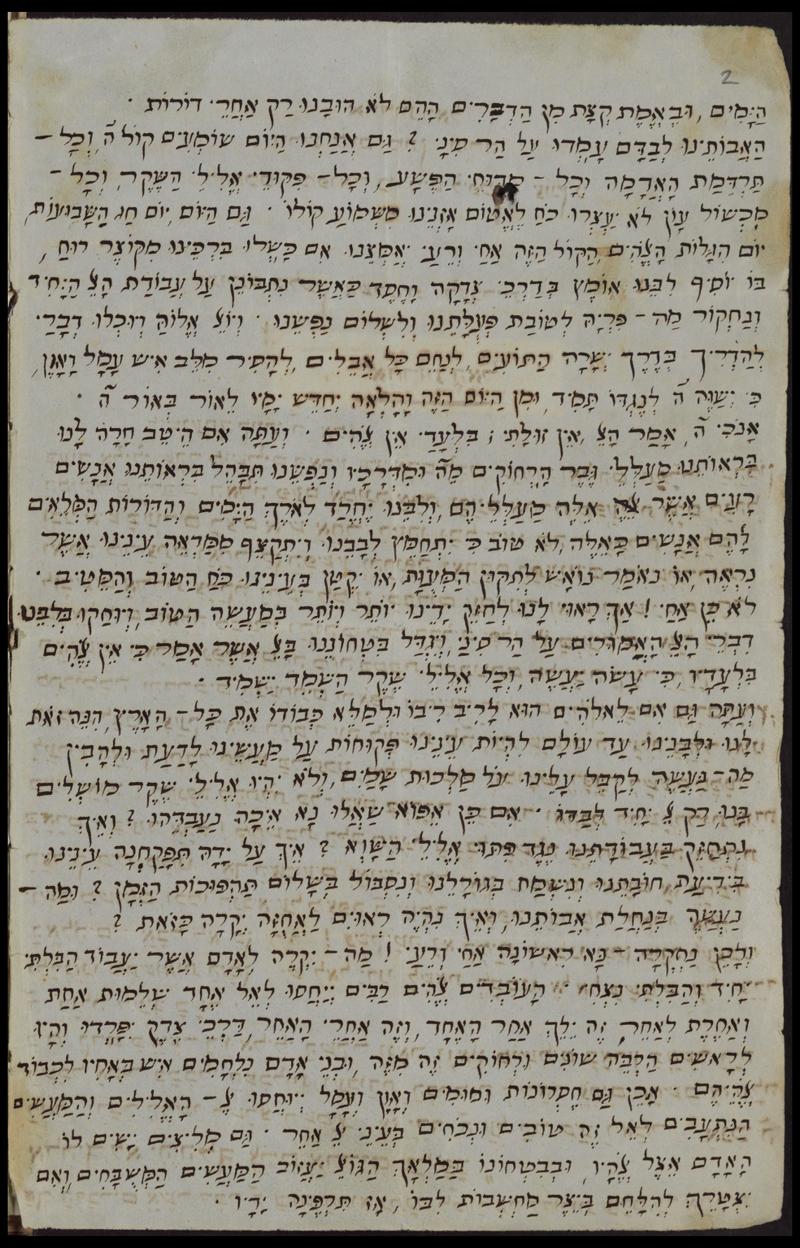 2
הַיָּמִים, וּבְאֱמֶת קְצָת מִן הַדְּבָרִים הָהֵם לֹא הוּבָנוּ רַק אַחֲרֵי דוֹרוֹת ·
הַאֲבוֹתֵינוּ לְבַדָּם עָמְדוּ עַל הַר סִינָי ? גַּם אֲנַחְנוּ הַיּוֹם שׁוֹמְעִים קוֹל ה֞, וְכָל –
תַּרְדֵּמַת הָאֲדָמָה וְכָל – הַפֶּשַׁע, וְכָל – פִּקּוּדֵי אֱלִילֵי הַשֶּׁקֶר, וְכָל –
מִכְשׁוֹל עָוֹן לֹא יַעַצְרוּ כֹחַ לֶאֱטוֹם אָזְנֵינוּ מִשְּׁמוֹעַ קוֹלוֹ · גַּם הַיּוֹם, יוֹם חַג הַשָּׁבוּעוֹת,
יוֹם הִגָּלוֹת הָצֱהִים, הַקּוֹל הַזֶּה אַחַי וְרֵעַי יְאַמְּצֵנוּ אִם כָּשְׁלוּ בִּרְכֵּינוּ מִקּוֹצֶר רוּחַ,
בּוֹ יוֹסִף לִבֵּנוּ אוֹמֶץ בְּדַרְכֵי צְדָקָה וָחֶסֶד כַּאֲשֶׁר נִתְבּוֹנֵן עַל עֲבוֹדַת הָצֵ הַיָּחִיד
וְנַחְקוֹר מַה – פִּרְיָהּ לְטוֹבַת פְּעֻלָּתֵנוּ וְלִשְׁלוֹם נַפְשֵׁנוּ · דְּבָרַי
לְהַדְרִיךְ בְּדֶרֶךְ יְשָׁרָה הַתּוֹעִים, לְנַחֵם כָּל אֲבֵלִים, לְהָסִיר מִלֵּב אִישׁ עָמָל וָאָוֶן,
כִּי יְשַׁוֶּה ה֞ לְנֶגְדּוֹ תָּמִיד, וּמִן הַיּוֹם הַזֶּה וָהָלְאָה יְחַדֵּשׁ יָמָיו לֵאוֹר בְּאוֹר ה֞ ·
אָנֹכִי ה֞, אָמַר הָצֵ, אֵין זוּלָתִי ; בִּלְעָדַי אֵין צֱהִים · וְעַתָּה אִם הֵיטֵב חָרָה לָנוּ
בִּרְאוֹתֵנוּ מַעַלְלֵי גֶבֶר הָרְחוֹקִים מֵה֞ וּמִדְּרָכָיו וְנַפְשֵׁנוּ תִּבָּהֵל בִּרְאוֹתֵנוּ אֲנָשִׁים
רָעִים אֲשֶׁר אֵלֶּה מַעַלְלֵיהֶם, וְלִבֵּנוּ יֶחֱרַד לְאֹרֶךְ הַיָּמִים וְהַדּוֹרוֹת הַמְּלֵאִים
לָהֶם אֲנָשִׁים כָּאֵלֶּה, לֹא טוֹב כִּי יִתְחַמֵּץ לְבָבֵנוּ וְיִתְקַצֵּף מִמַּרְאֵה עֵינֵינוּ אֲשֶׁר
נִרְאֶה, אוֹ נֹאמַר נוֹאָשׁ לְתִקּוּן הַמְּעֻוָּת, אוֹ יִקְטַן בְּעֵינֵינוּ כֹּחַ הַטּוֹב וְהַמֵּטִיב ·
לֹא כֵן אַחַי ! אַךְ רָאוּי לָנוּ לְחַזֵּק יָדֵינוּ יוֹתֵר וְיוֹתֵר בְּמַעֲשֵׂה הַטּוֹב, וְיוּחַקוּ בְּלִבֵּנוּ
דִּבְרֵי הָצֵ הָאֲמוּרִים עַל הַר סִינַי, וְיִגְדַּל בִּטְחוֹנֵנוּ בָּצֵ אֲשֶׁר אָמַר כִּי אֵין צֱהִים
בִּלְעָדָיו, כִּי עָשֹׂה יַעֲשֶׂה, וְכָל אֱלִילֵי שֶׁקֶר הַשְׁמֵד יַשְׁמִיד ·
וְעַתָּה גַּם אִם לֵאלֹהִים הוּא לָרִיב רִיבוֹ וּלְמַלֵּא כְּבוֹדוֹ אֶת כָּל – הָאָרֶץ, הִנֵּה זֹאת
לָנוּ וּלְבָנֵינוּ עַד עוֹלָם לִהְיוֹת עֵינֵינוּ פְּקוּחוֹת עַל מַעֲשֵׂינוּ לָדַעַת וּלְהָבִין
מַה – נַּעֲשֶׂה לְקַבֵּל עָלֵינוּ עֹל מַלְכוּת שָׁמַיִם, וְלֹא יִהְיוּ אֱלִילֵי שֶׁקֶר מוֹשְׁלִים
בָּנוּ, רַק צֵ יָחִיד לְבַדּוֹ · אִם כֵּן אֵפוֹא שַׁאֲלוּ נָא אֵיכָה נַעַבְדֵהוּ ? וְאֵיךְ
נִתְחַזֵּק בַּעֲבוֹדָתֵנוּ נֶגֶד פִּתּוּי אֱלִילֵי הַשָּׁוְא ? אֵיךְ עַל יָדָהּ תִּפָּקַחְנָה עֵינֵינוּ
בִּידִיעַת חוֹבָתֵנוּ וְנִשְׂמַח בְּגוֹרָלֵנוּ וְנִסְבּוֹל בְּשָׁלוֹם תַּהְפּוּכוֹת הַזְּמָן ? וּמַה –
נַעֲשֶׂה בְּנַחֲלַת אֲבוֹתֵנוּ, וְאֵיךְ נִהְיֶה רְאוּיִם לַאֲחֻזָּה יְקָרָה כָּזֹאת ?
וְלָכֵן נַחְקְרָה – נָּא רִאשׁוֹנָה אַחַי וְרֵעַי ! מַה – יִּקְרֶה לָאָדָם אֲשֶׁר יַעֲבוֹד הַבִּלְתִּי
יָחִיד וְהַבִּלְתִּי נִצְחִי · הָעוֹבְדִים צֱהִים רַבִּים יְיַחֲסוּ לְאֵל אֶחָד שְׁלֵמוּת אַחַת
וְאַחֶרֶת לְאַחֵר, זֶה יֵלֵךְ אַחַר הָאֶחָד, וְזֶה אַחֲרֵי הָאַחֵר, דַּרְכֵי צֶדֶק יִפָּרְדוּ וְהָיוּ
לְרָאשִׁים הַרְבֵּה שׁוֹנִים וּרְחוֹקִים זֶה מִזֶּה, וּבְנֵי אָדָם נִלְחָמִים אִישׁ בְּאָחִיו לִכְבוֹד
צֱהֵיהֶם · אָכֵן גַּם חֶסְרוֹנוֹת וּמוּמִים וְאָוֶן וְעָמָל יְיַחֲסוּ צֶ – הָאֱלִילִים וְהַמַּעֲשִׂים
הַנִּתְעָבִים לְאֵל זֶה טוֹבִים וּנְכֹחִים בְּעֵינֵי צֵ אַחֵר · גַּם מְלִיצִים יָשִׂים לוֹ
הָאָדָם אֵצֶל צֱהָיו, וּבְבִטְחוֹנוֹ בַּמַּלְאָךְ הַגּוֹאֵ יַעֲזוֹב הַמַּעֲשִׂים הַמְשֻׁבָּחִים, וְאִם
יִצְטָרֵךְ לְהִלָּחֵם בְּיֵצֶר מַחְשְׁבוֹת לִבּוֹ, אָז תִּרְפֶּינָה יָדָיו ·